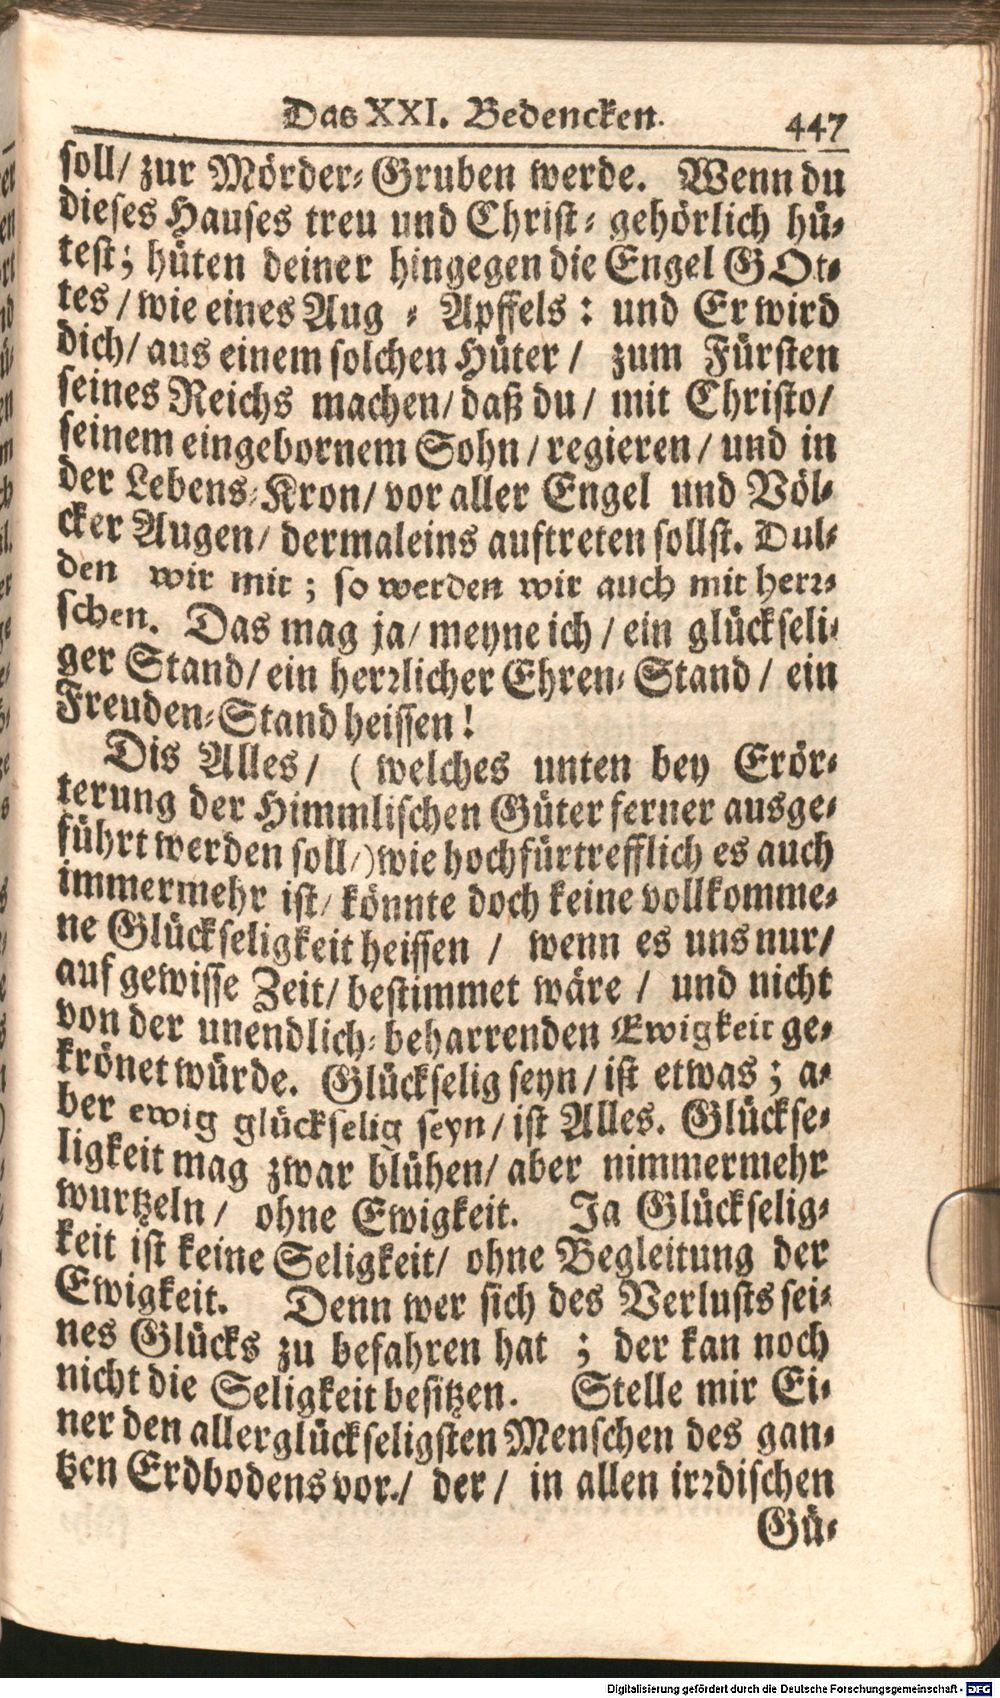 Das XXI. Bedencken. 447
soll/ zur Mörder-Gruben werde. Wenn du
dieses Hauses treu und Christ-gehörlich hü-
test; hüten deiner hingegen die Engel GOt-
tes / wie eines Aug - Apffels : und Er wird
dich/ aus einem solchen Hüter / zum Fürsten
seines Reichs machen/ daß du / mit Christo/
seinem eingebornem Sohn / regieren / und in
der Lebens-Kron/ vor aller Engel und Völ-
cker Augen/ dermaleins auftreten sollst. Dul-
den wir mit ; so werden wir auch mit herr-
schen. Das mag ja/ meyne ich / ein glückseli-
ger Stand/ ein herrlicher Ehren-Stand / ein
Freuden-Stand heissen!
Dis Alles/ (welches unten bey Erör-
terung der Himmlischen Güter ferner ausge-
führt werden soll/) wie hochfürtrefflich es auch
immermehr ist/ könnte doch keine vollkomme-
ne Glückseligkeit heissen / wenn es uns nur/
auf gewisse Zeit/ bestimmet wäre / und nicht
von der unendlich-beharrenden Ewigkeit ge-
krönet würde. Glückselig seyn / ist etwas ; a-
ber ewig glückselig seyn / ist Alles. Glückse-
ligkeit mag zwar blühen/ aber nimmermehr
wurtzeln / ohne Ewigkeit. Ja Glückselig-
keit ist keine Seligkeit/ ohne Begleitung der
Ewigkeit. Denn wer sich des Verlusts sei-
nes Glücks zu befahren hat ; der kan noch
nicht die Seligkeit besitzen. Stelle mir Ei-
ner den allerglückseligsten Menschen des gan-
tzen Erdbodens vor./ der / in allen irrdischen
Gü-
Digitalisierung gefördert durch die Deutsche Forschungsgemeinschaft - DFG